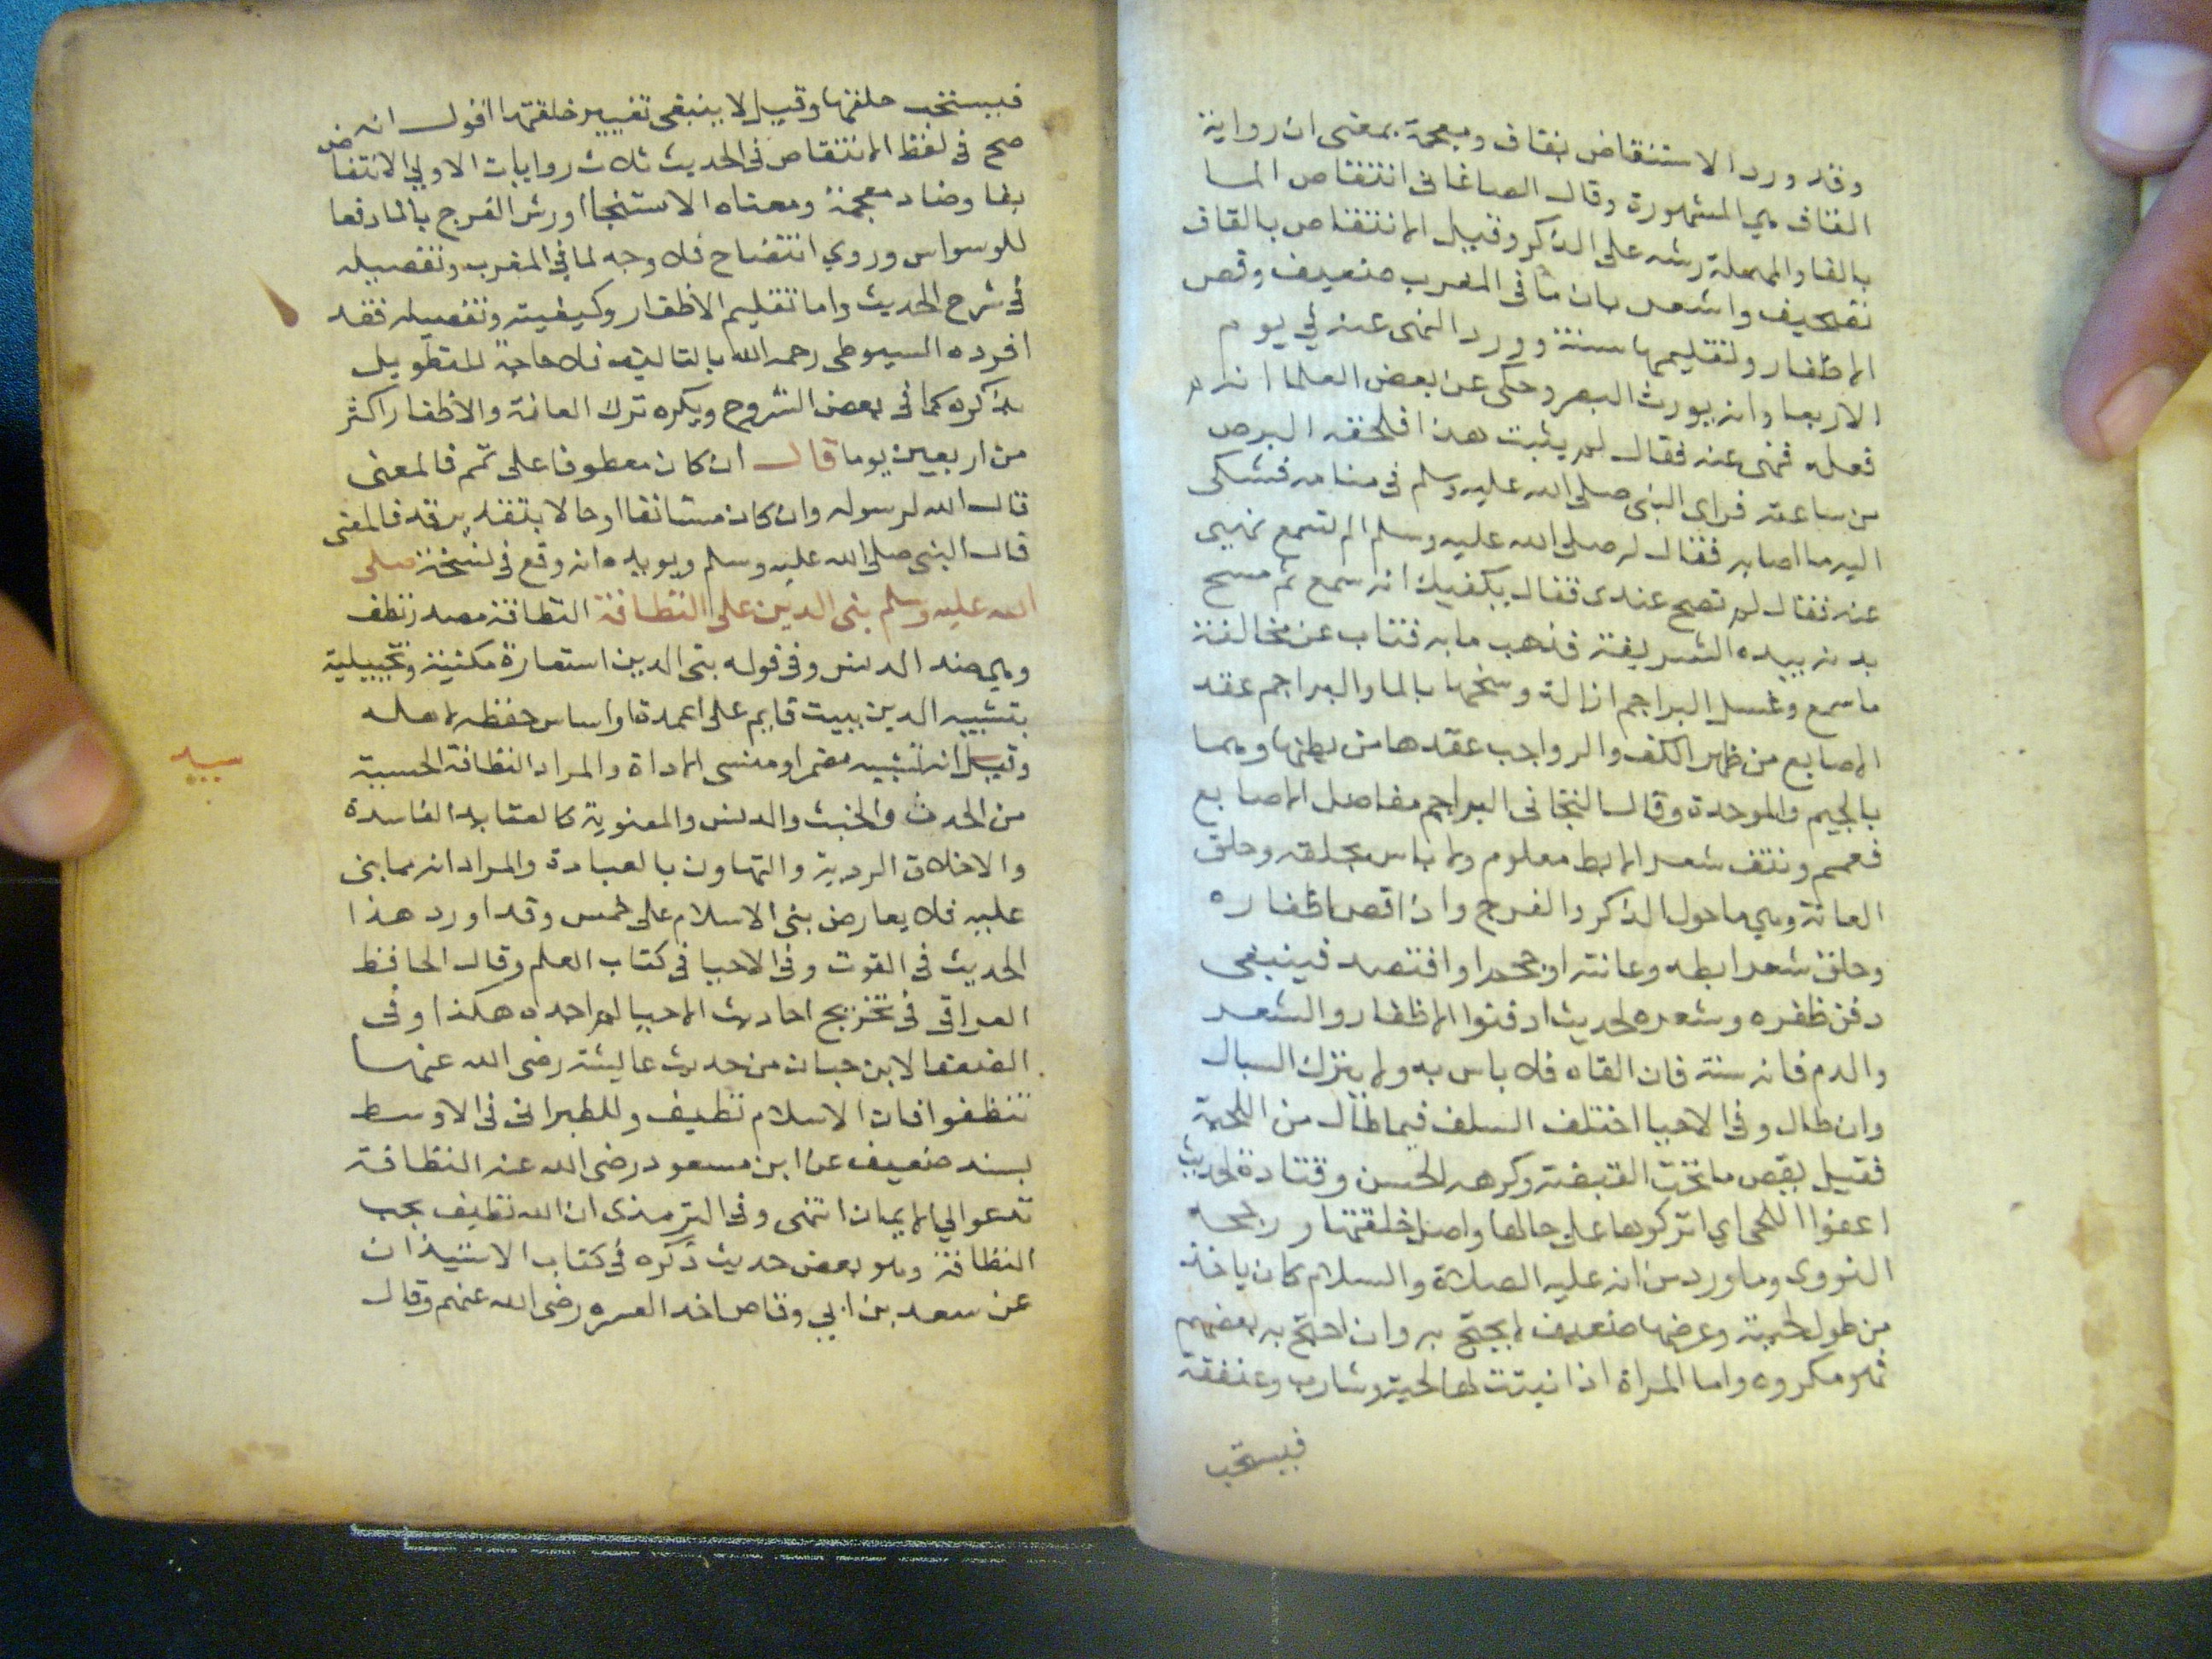 وقد ورد الاستنقاض بقاف ومعجمة بمعنى ان رواية
القاف هي المشهورة وقال الصاغاني انتقاص الما
بالفا والمهملة رشه على الذكر وقيل الانتقاص بالقاف
تصحيف واشعر بان ما في المغرب ضعيف وقص
الاظفار وتقليمها سنة وورد النهى عنه في يوم
الاربعا وانه يورث البرص وحكى عن بعض العلما انه
فعله فنهى عنه فقال لم يثبت هذا فلحقه البرص
من ساعته فراى النبى صلى الله عليه وسلم في منامه فشكى
اليه ما اصابه فقال له صلى الله عليه وسلم الم تسمع نهيى
عنه فقال لم تصح عندى فقال يكفيك انه سمع ثم مسح
بدنه بيده الشريفة فذهب ما به فتاب عن مخالفة
ما سمع وغسل البراجم ازالة وسخها بالما والبراجم عقد
الاصابع من ظهر الكف والرواجب عقدها من بطنها وهما
بالجيم والموحدة وقال البراجم مفاصل الاصابع
فعمم ونتف شعر الابط معلوم ولا باس بحلقه وحلق
العانة وهي ما حول الذكر والفرج واذا قص اظفاره
وحلق شعر ابطه وعانته او افتصد فينبغى
دفن ظفره وشعره لحديث ادفنوا الاظفار والشعر
والدم فانه سنة فان القاه فلا باس به ولا يترك السبال
وان طال وفى الاحيا اختلف السلف فيما طال من اللحية
فقيل يقص ما تحت القبضة وكرهه الحسن وقتادة لحديث
اعفوا اللحى اي اتركوها على حالها واصل خلقتها ورجحه
النووى وما ورد من انه عليه الصلاة والسلام كان ياخذ
من طول لحيته وعرضها ضعيف لا يحتج به وان احتج به بعضهم
فهو مكروه واما المراة اذا نبتت لها لحية وشارب وعنفقة
فيستحب
فيستحب حلقها وقيل لا ينبغى تغيير خلقتها اقول انه
صح في لفظ الانتقاص فى الحديث ثلاث روايات الاولى الانتفاض
بفا وضاد معجمة ومعناه الاستنجا او رش الفرج بالما دفعا
للوسواس وروي انتضاح فلا وجه لما في المغرب وتفصيله
فى شرح الحديث واما تقليم الاظفار وكيفيته وتفصيله فقد
افرده السيوطى رحمه الله بالتاليف فلا حاجة للتطويل
بذكره كما فى بعض الشروح ويكره ترك العانة والاظفار اكثر
من اربعين يوما قال ان كان معطوفا على تمم فالمعنى
قال الله لرسوله وان كان مستانفا او حالا بتقدير قد فالمعنى
قال النبى صلى الله عليه وسلم ويويده انه وقع فى نسخة صلى
الله عليه وسلم بنى الدين على النظافة النظافة مصدر نظف
وهي ضد الدنس وفى قوله بنى الدين استعارة مكنية وتخييلية
بتشبيه الدين ببيت قايم على اعمدة او اساس حفظه لاهله
وقيل انه تشبيه مضمر او منسى الاداة والمراد النظافة الحسية
من الحدث والخبث والدنس والمعنوية كالعقايد الفاسدة
والاخلاق الردية والتهاون بالعبادة والمراد انه مما بنى
عليه فلا يعارض بنى الاسلام على خمس وقد اورد هذا
الحديث فى القوت وفى الاحيا فى كتاب العلم وقال الحافظ
العراقى فى تخريج احاديث الاحيا لم اجده هكذا وفى
الضعفا لابن حبان من حديث عايشة رضى الله عنها
تنظفوا فان الاسلام نظيف وللطبرانى فى الاوسط
بسند ضعيف عن ابن مسعود رضى الله عنه النظافة
تدعوا الي الايمان انتهى وفى الترمذى ان الله نظيف يحب
النظافة وهو بعض حديث ذكره فى كتاب الاستيذان
عن سعد بن ابي وقاص احد العشره رضى الله عنهم وقال